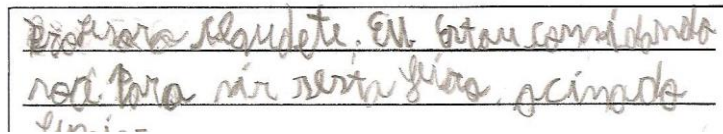 Professora Claudete. Eu Estou comvidando
você Para vir sesta feira. acinado